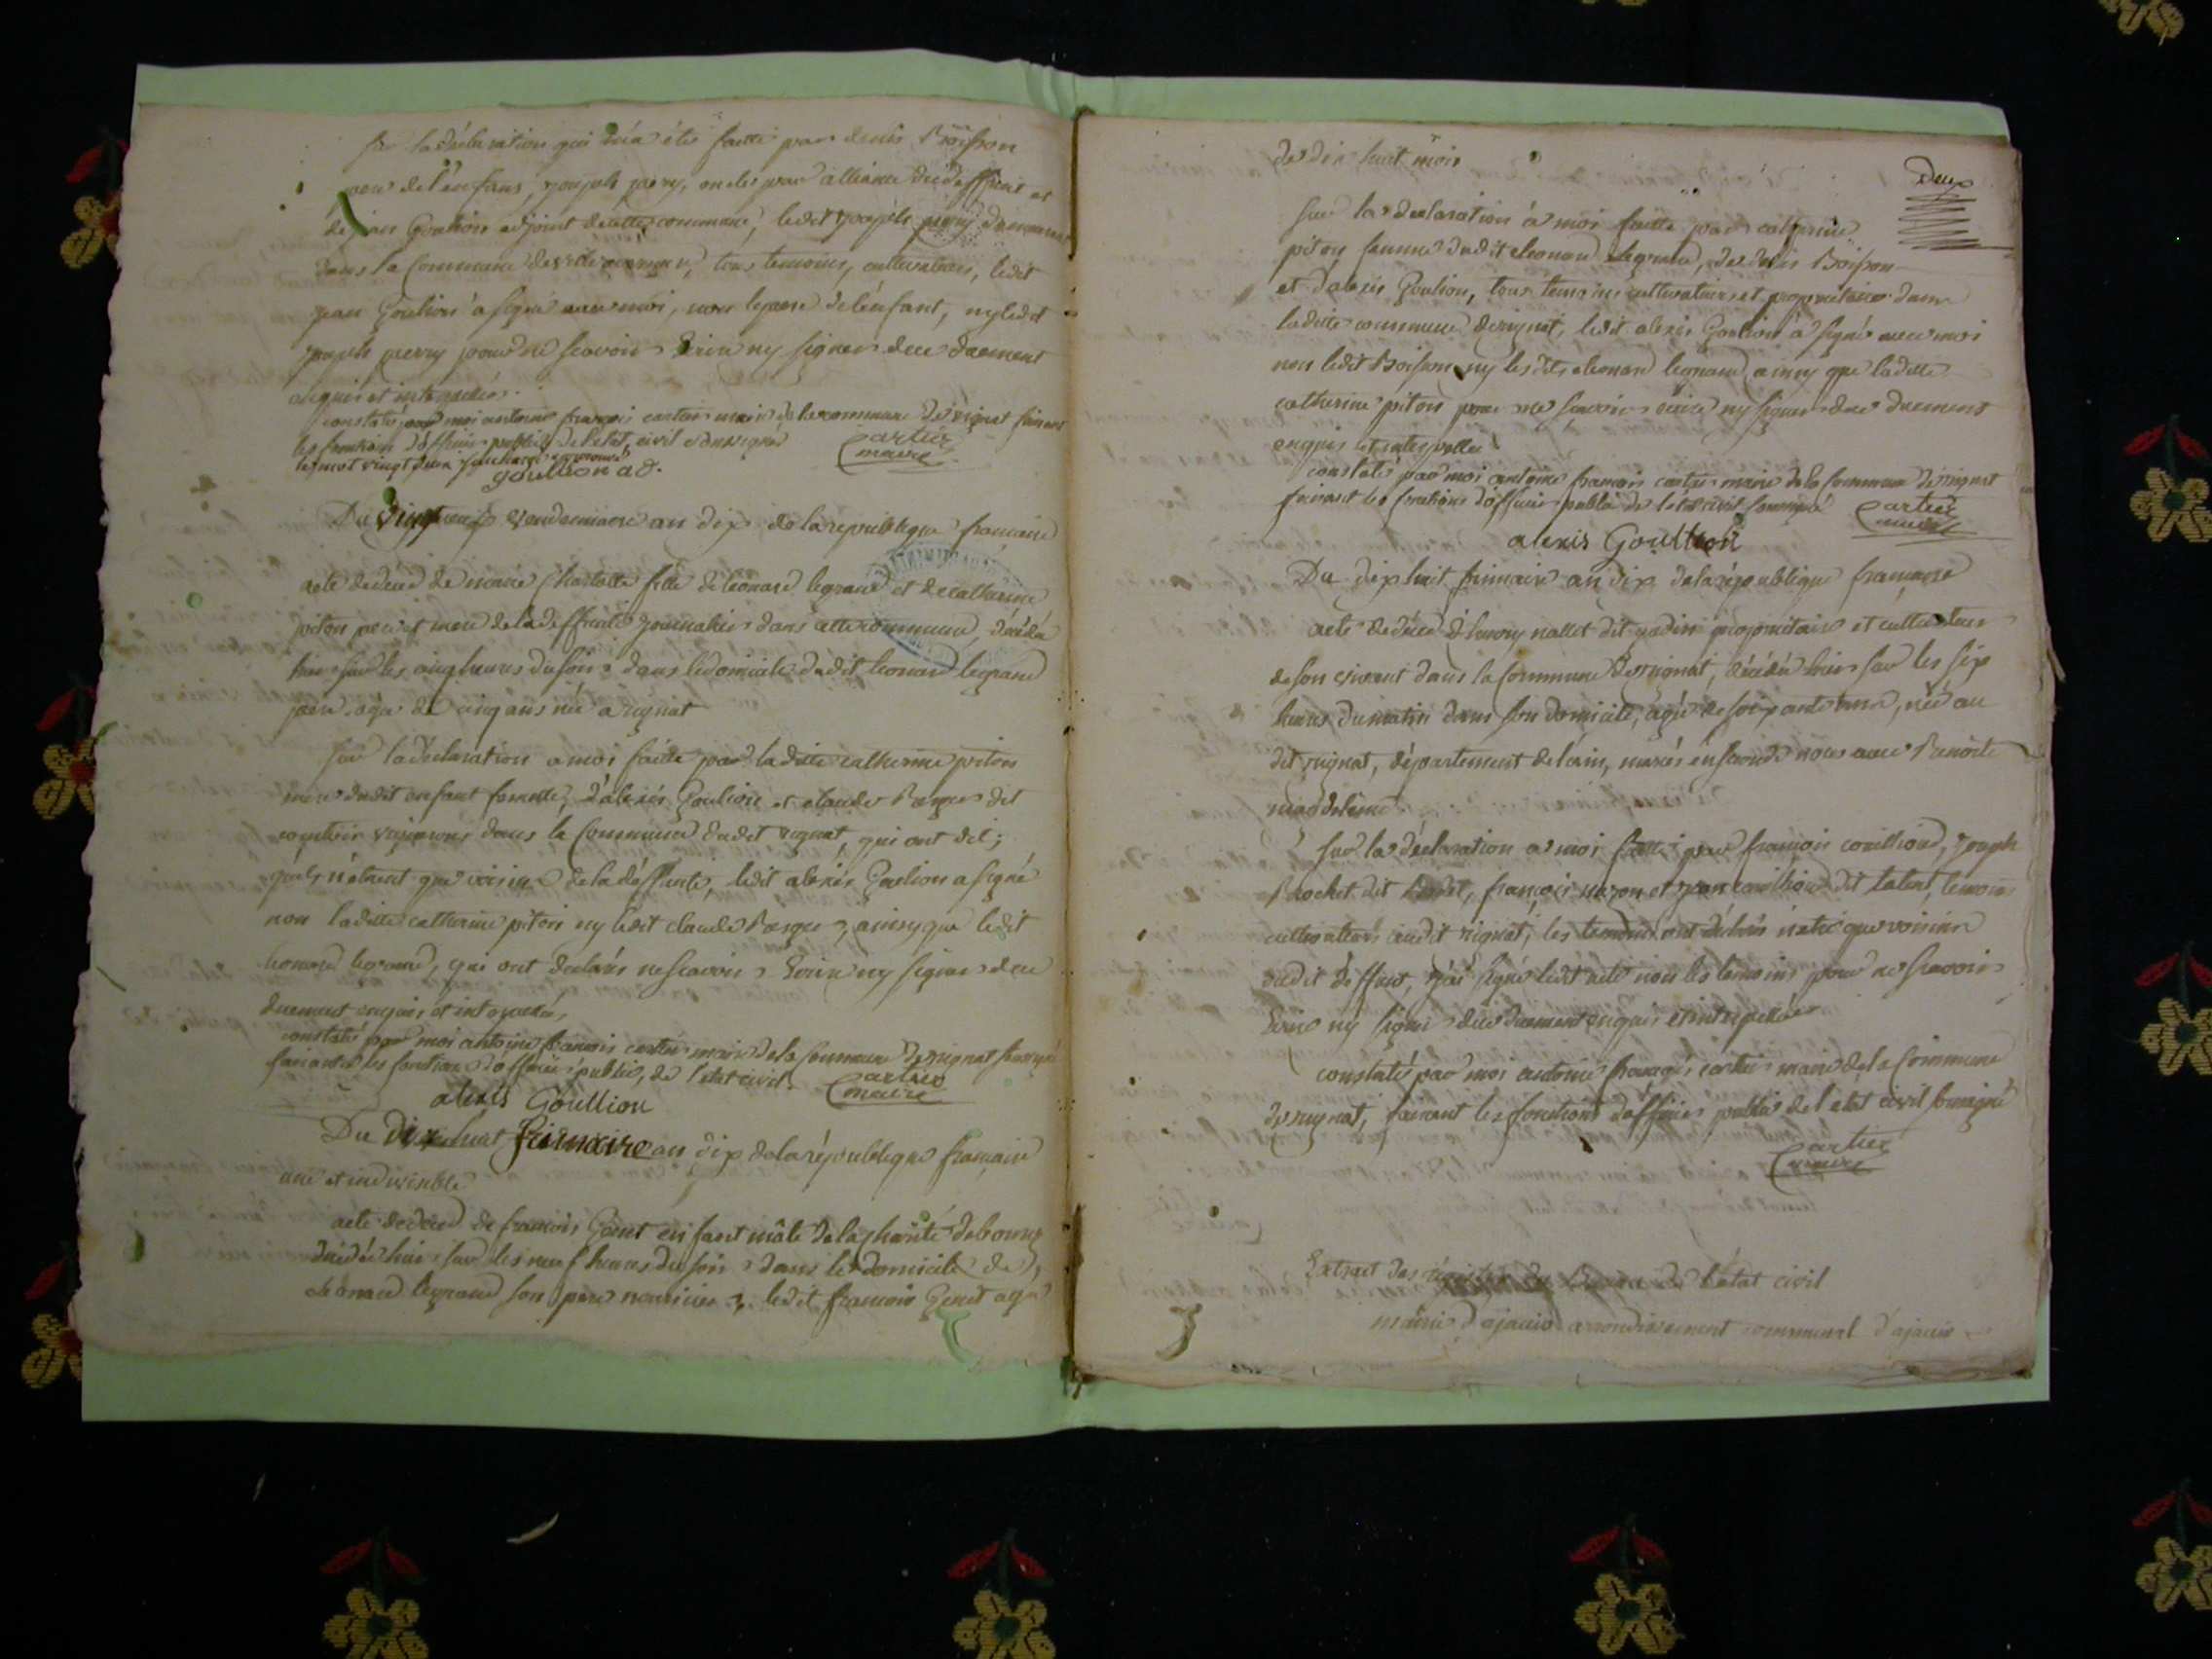 sur la déclaration qui m'a été faitte par denis Boisson
pere de l'enfans, joseph perry, oncle par alliance du deffunt et
de jean Goulion adjoint de cette commune, ledit joseph perry demeurant
dans la Commune de tous temoins, cultivateurs, ledit
jean Goulion a signé avec moi, non le pere de l'enfant, ny ledit
joseph perry pour ne scavoir Ecrire ny signer de ce duement
enquis et interpellés.
constaté par moi antoine françois cartier maire de la commune de rignat faisant
les fonctions d'officier public de l'état civil soussigné
Cartier
maire
le mot vingt approuvé
goullion ad.
Du vingt neuf vendemiaire an dix de la republique francaise
acte de décéd de marie Charlotte fille de leonard legrand et de catherine
piton pere et mere de la deffunte journalier dans cette commune, décédé
hier sur les cinq heures du soir dans le domicile dudit leonard legrand
pere agée de cinq ans née a rignat
sur la déclaration a moi faitte par ladite catherine piton
mere dudit enfant femelle, d'alexis Goulion et claude dit
dans la Commune dudit rignat, qui ont dit;
qu'ils n'étoient que voisins de la déffunte, ledit alexis Goulion a signé
non ladite catherine piton ny ledit claude ainsy que ledit
leonard legrand, qui ont déclarés ne scavoir Ecrire ny signer de ce
duement enquis et interpellés,
constaté par moi antoine francois cartier maire de la Commune de rignat soussigné
faisant les fonctions d'officier public, de l'état civil.
Cartier
maire
alexis Goullion
Du dix huit frimaire an dix de la république francaise
une et indivisible
acte de décéd de francois Genet enfant mâle de la charité de bourg
décédé hier sur les neuf heures du soir dans le domicile de
leonard legrand son pere nourricier, ledit francois Genet agé
de dix huit mois
Deux
sur la déclaration a moi faitte par catherine
piton femme dudit leonard legrand, de denis Boisson
et d'alexis Goulion, tous temoins cultivateurs et propriétaires dans
laditte commune de rignat, ledit alexis Goulion a signé avec moi
non ledit Boisson ny ledit leonard legrand ainsy que ladite
catherine piton pour ne scavoir écrire ny signer de ce duement
enquis et interpellés
constaté par moi antoine francois cartier maire de la Commune de rignat
faisant les fonctions d'officier public de l'état civil soussigné
Cartier
maire
alexis Goullion
Du dix huit frimaire an dix de la république francaise
acte de décéd d' nallet dit propriétaire et cultivateur
de son vivant dans la Commune de rignat, décédé hier sur les six
heures du matin dans son domicile, agé de soixante ans, né au
dit rignat, département de l'ain, mariés en seconde noces avec Benoite
magdeleine
sur la déclaration a moi faitte par francois couillioud, joseph
Brochet dit, françois et jean couillioud dit talent, temoins
cultivateurs audit rignat, les temoins ont déclarés n'etre que voisins
dudit déffunt, j'ai signé ledit acte non les temoins pour ne scavoir
Ecrire ny signer de ce duement enquis et interpellés
constaté par moi antoine françois cartier maire de la Commune
de rignat, faisant les fonctions d'officier public de l'état civil soussigné
Cartier
maire
Extrait des registres du Bureau de l'état civil
mairie d'ajaccio arrondissement communal d'ajaccio